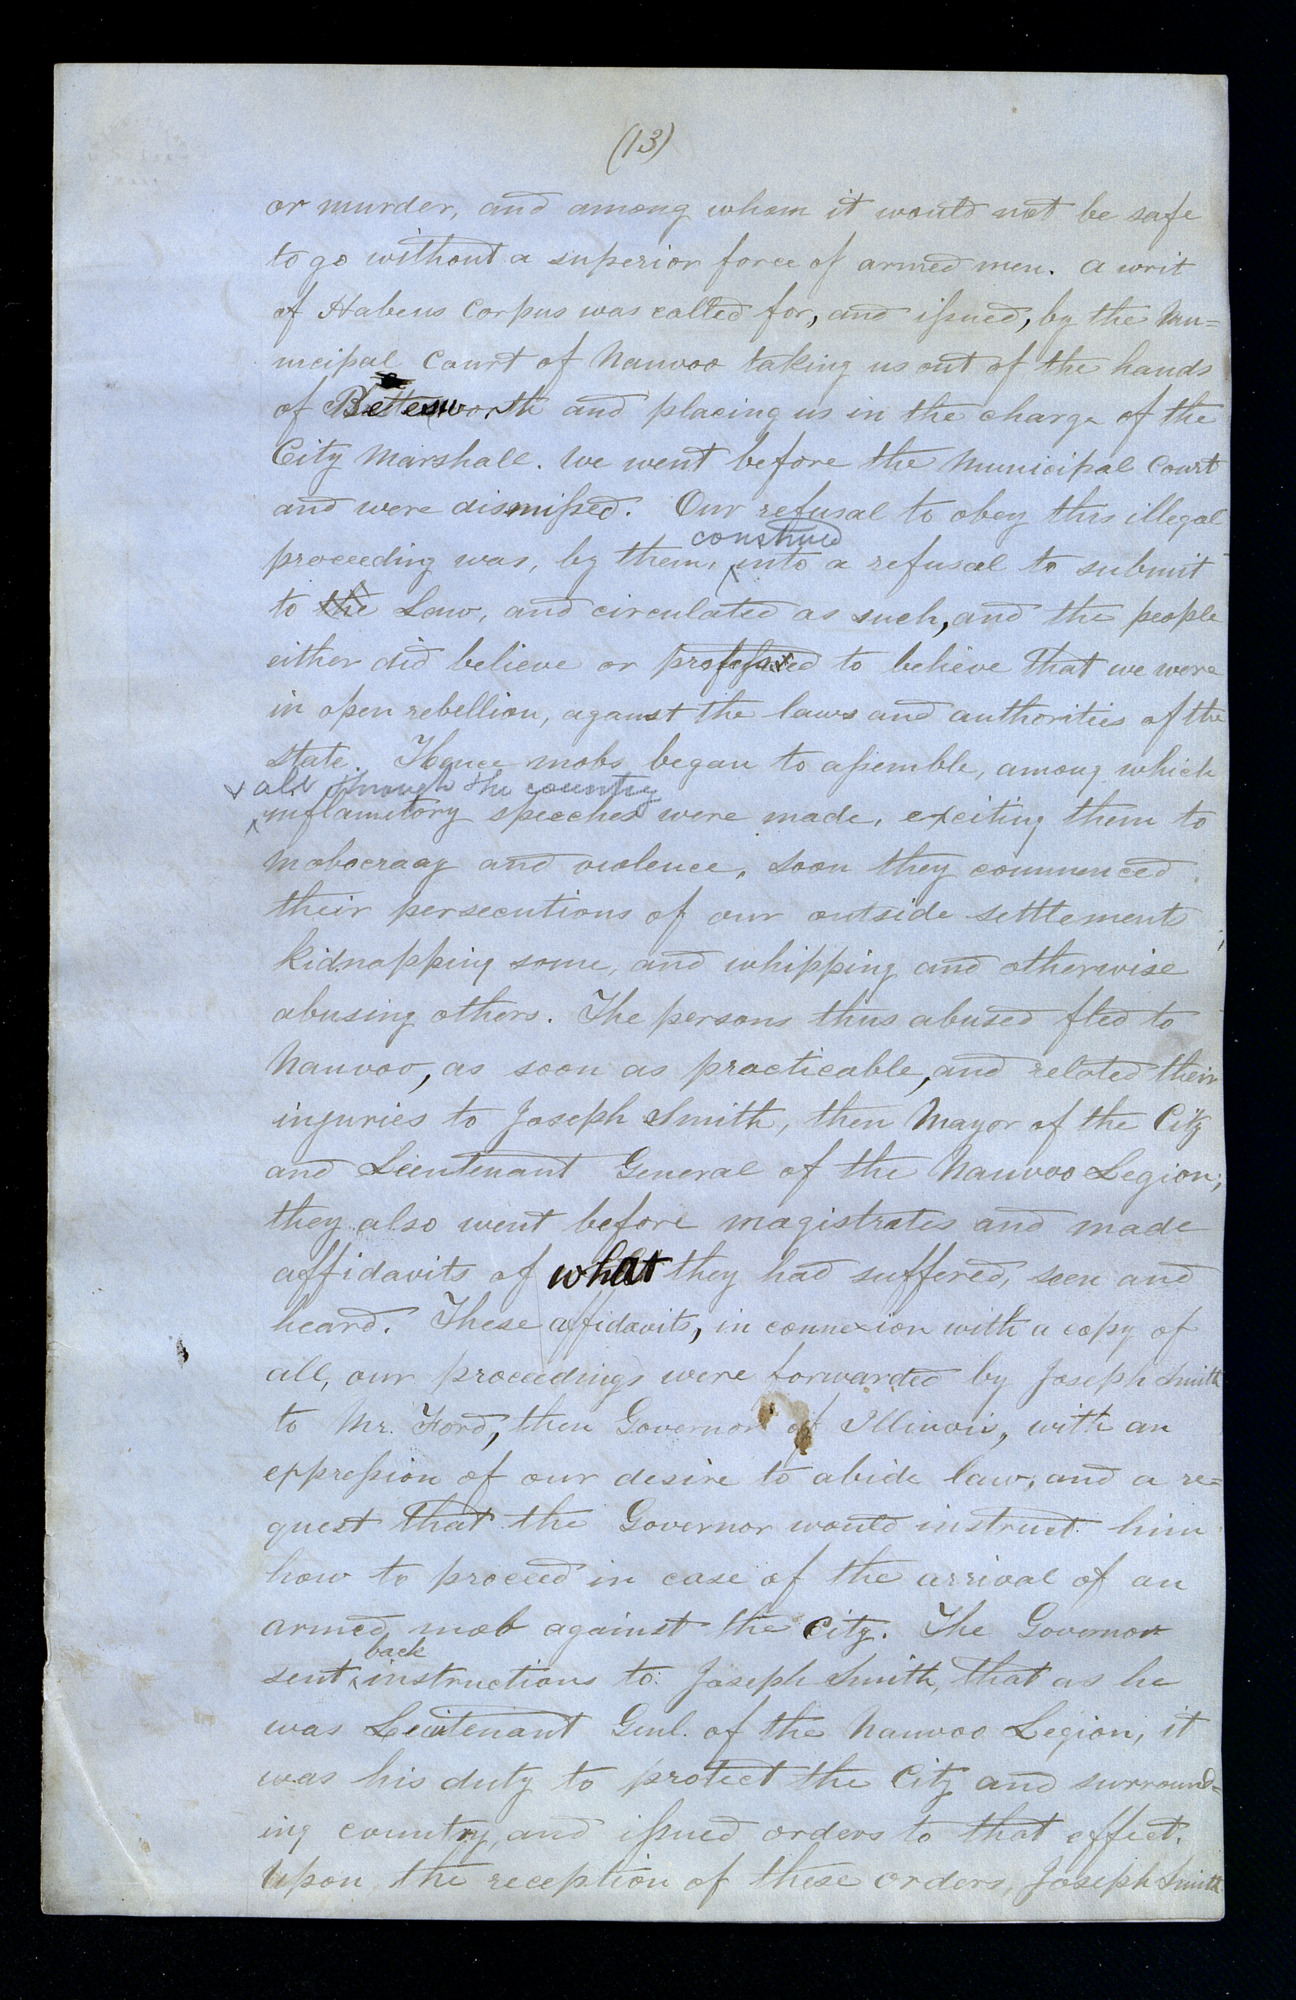 (13)
or murder, and among whom it would not be safe
to go without a superior force of armed men. A writ
of Habeus Corpus was called for, and issued, by the Mu=
nicipal Court of Nauvoo taking us out of the hands
of Bettesworth and placing us in the charge of the
City Marshall. We went before the Municipal Court
and were dismissed. Our refusal to obey this illegal
construed
proceeding was, by them, ^ into a refusal to submit
to the Law, and circulated as such, and the people
either did believe or professed to believe that we were
in open rebellion, against the laws and authorities of the
State. Hence mobs began to assemble, among which
all through the country
inflamitory speeches were made, exciting them to
mobocracy and violence, soon they commenced
their persecutions of our outside settlements
kidnapping some, and whipping and otherwise
abusing others. The persons thus abused fled to
Nauvoo, as soon as practicable, and related their
injuries to Joseph Smith, then Mayor of the City
and Lieutenant General of the Nauvoo Legion;
they also went before magistrates and made
affidavits of what they had suffered, seen and
heard. These affidavits, in connexion with a copy of
all, our proceedings were forwarded by Joseph Smith
to Mr. Ford, then Governor of Illinois, with an
expression of our desire to abide law, and a re=
quest that the Governor would instruct him
how to proceed in case of the arrival of an
armed mob against the City. The Governor
back
sent ^ instructions to Joseph Smith, that as he
was Leiutenant Genl. of the Nauvoo Legion, it
was his duty to protect the City and surround=
ing country, and issued orders to that effect.
Upon the reception of these orders, Joseph Smith